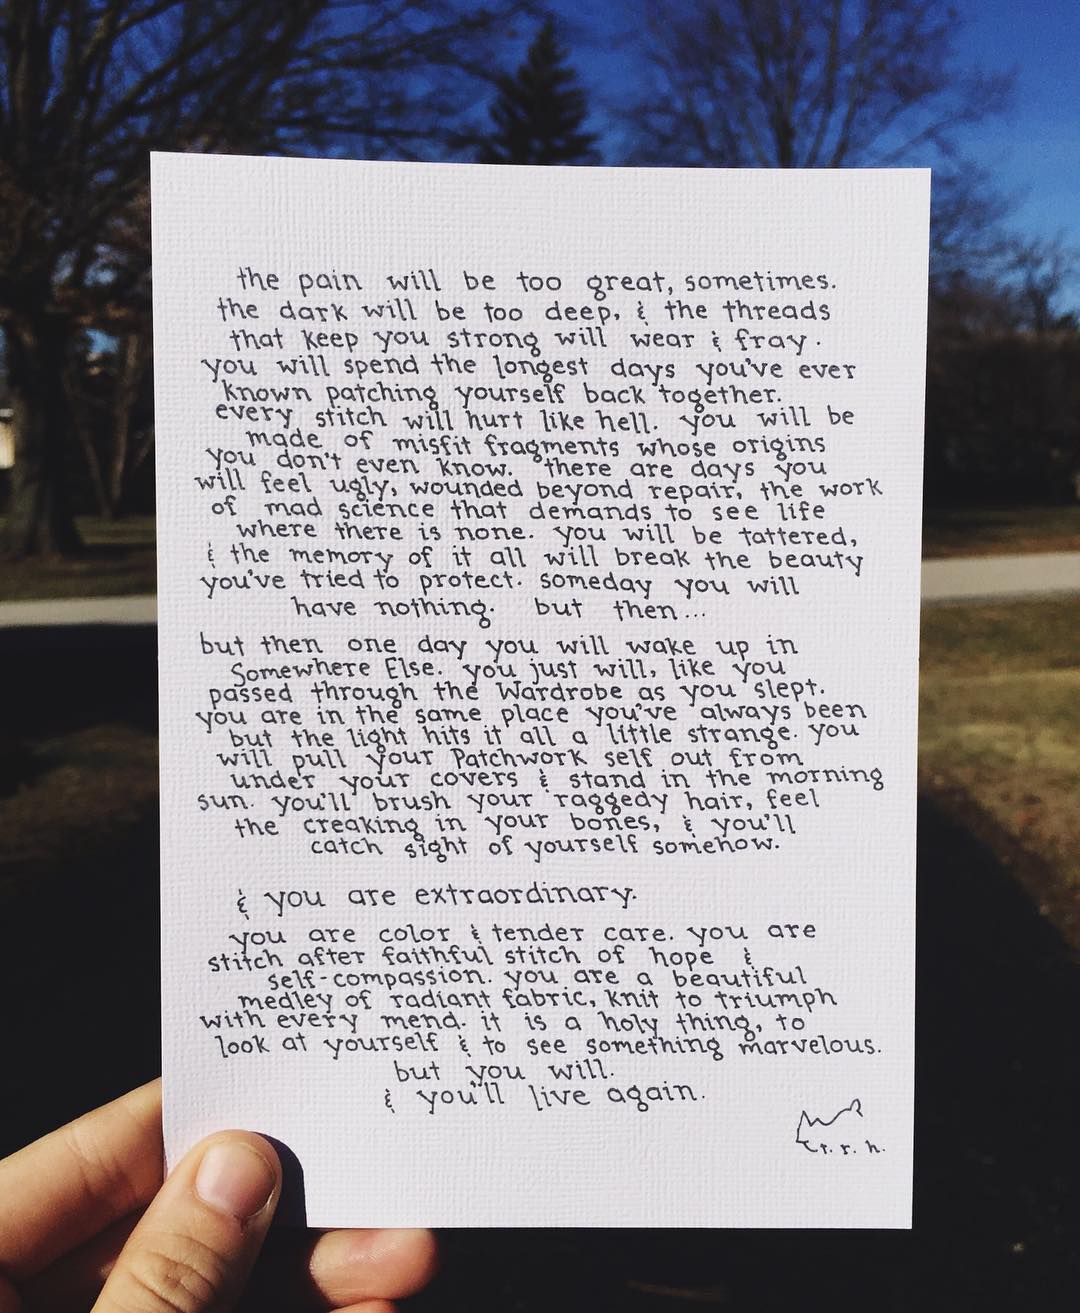 the pain will be too great, sometimes.
the dark will be too deep, & the threads
that keep you strong will wear & fray.
you will spend the longest days you've ever
known patching yourself back together.
every stitch will hurt like hell. you will be
made of misfit fragments whose origins
you don't even know. there are days you
will feel ugly, wounded beyond repair, the work
of mad science that demands to see life
where there is none. you will be tattered,
& the memory of it all will break the beauty
you've tried to protect. someday you will
have nothing. but then...
but then one day you will wake up in
Somewhere Else. you just will, like you
passed through the Wardrobe as you slept.
you are in the same place you've always been
but the light hits it all a little strange. you
will pull your Patchwork self out from
under your covers & stand in the morning
sun. you'll brush your raggedy hair, feel
the creaking in your bones, & you'll
catch sight of yourself somehow.
& you are extraordinary.
you are color & tender care. you are
stitch after faithful stitch of hope &
self-compassion. you are a beautiful
medley of radiant fabric, knit to triumph
with every mend. it is a holy thing, to
look at yourself & to see something marvelous.
but you will.
& you'll live again.
t. r. h.